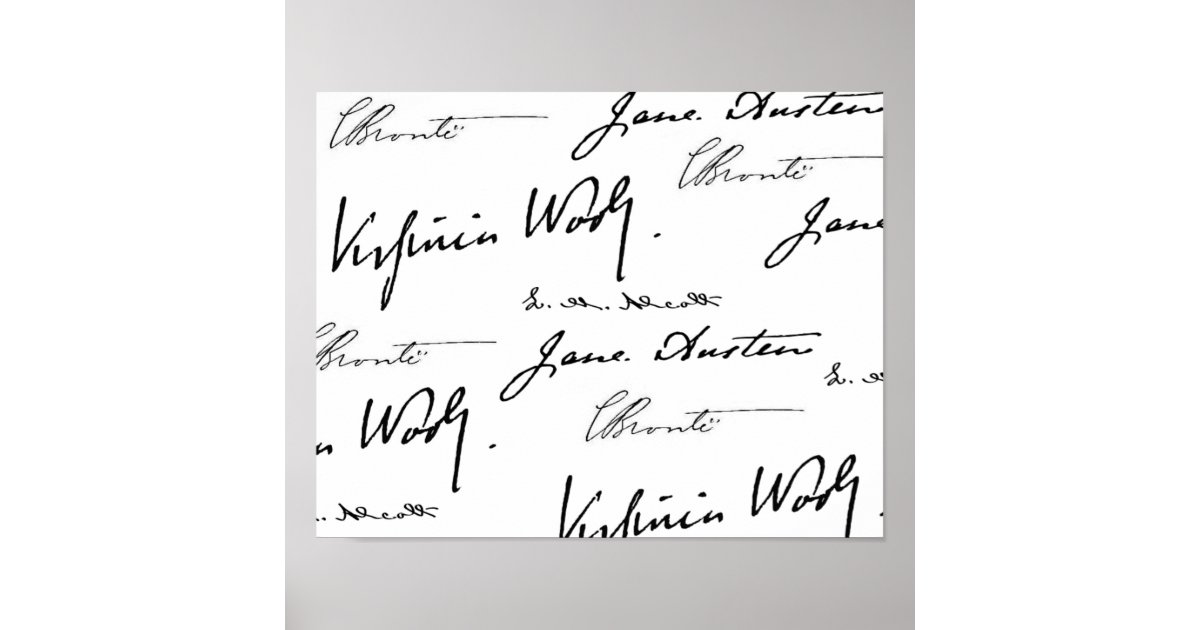 CBrontë
Jane Austen
CBrontë
Virginia Woolf.
Jane
L. M. Alcott
CBrontë
Jane Austen
L. M
Woolf.
CBrontë
. Alcott
Virginia Woolf.